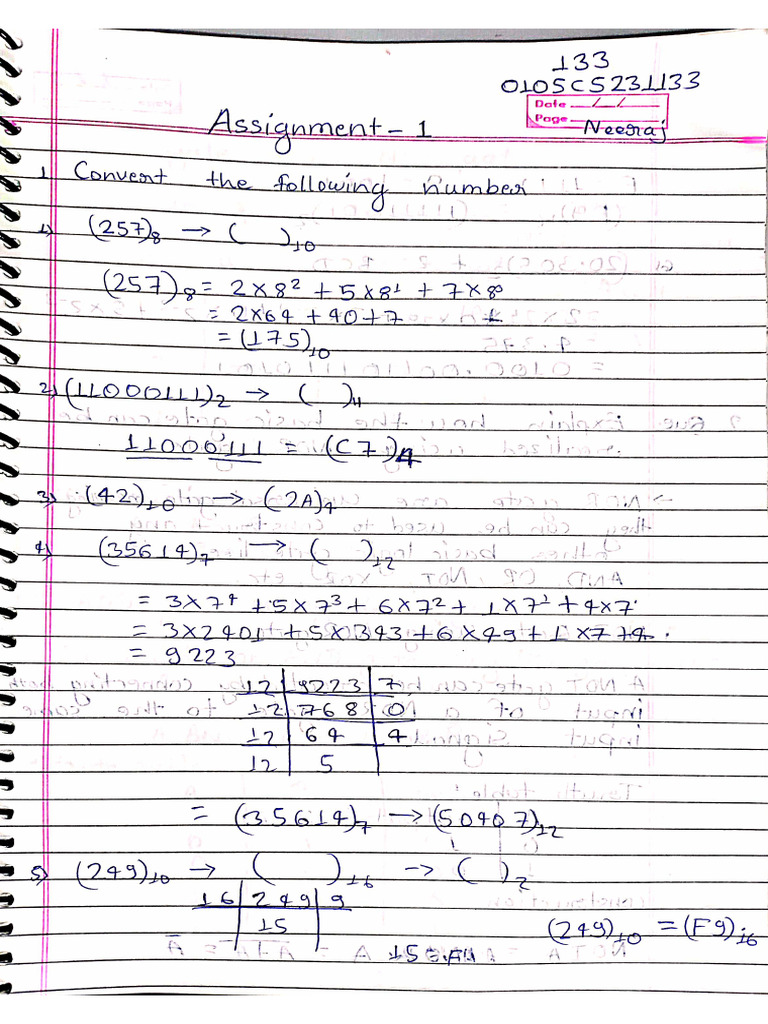 133
0105CS231133
Date
Page
Neeraj
Assignment - 1
1 Convert the following number
1) (257)₈ → ( )₁₀
(257)₈ = 2×8² + 5×8¹ + 7×8⁰
= 2×64 + 40+7
= (175)₁₀
2) (11000111)₂ → ( )₄
11000111 = (C7)₄
3) (42)₁₀ → (2A)₄
4) (35614)₇ → ( )₁₂
= 3×7⁴ + 5×7³ + 6×7² + 1×7¹ + 4×7°
= 3×2401 + 5×343 + 6×49 + 1×7+4.
= 9223
12 | 9223 | 7
12 | 768 | 0
12 | 64 | 4
12 | 5
= (35614)₇ → (50407)₁₂
5) (249)₁₀ → ( )₁₆ → ( )₂
16 | 249 | 9
15
(249)₁₀ = (F9)₁₆